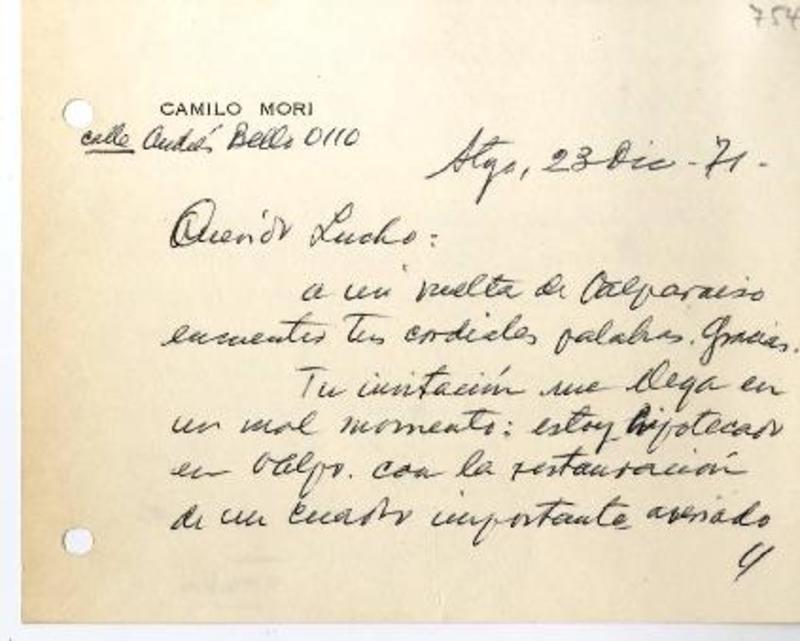 754
CAMILO MORI
calle Andrés Bello 0110
Stgo, 23 Dic - 71 -
Querido Lucho:
a mi vuelta de Valparaiso
encuentro tus cordiales palabras. Gracias.
Tu invitación me llega en
un mal momento: estoy hipotecado
en Valpo. con la restauración
de un cuadro importante averiado